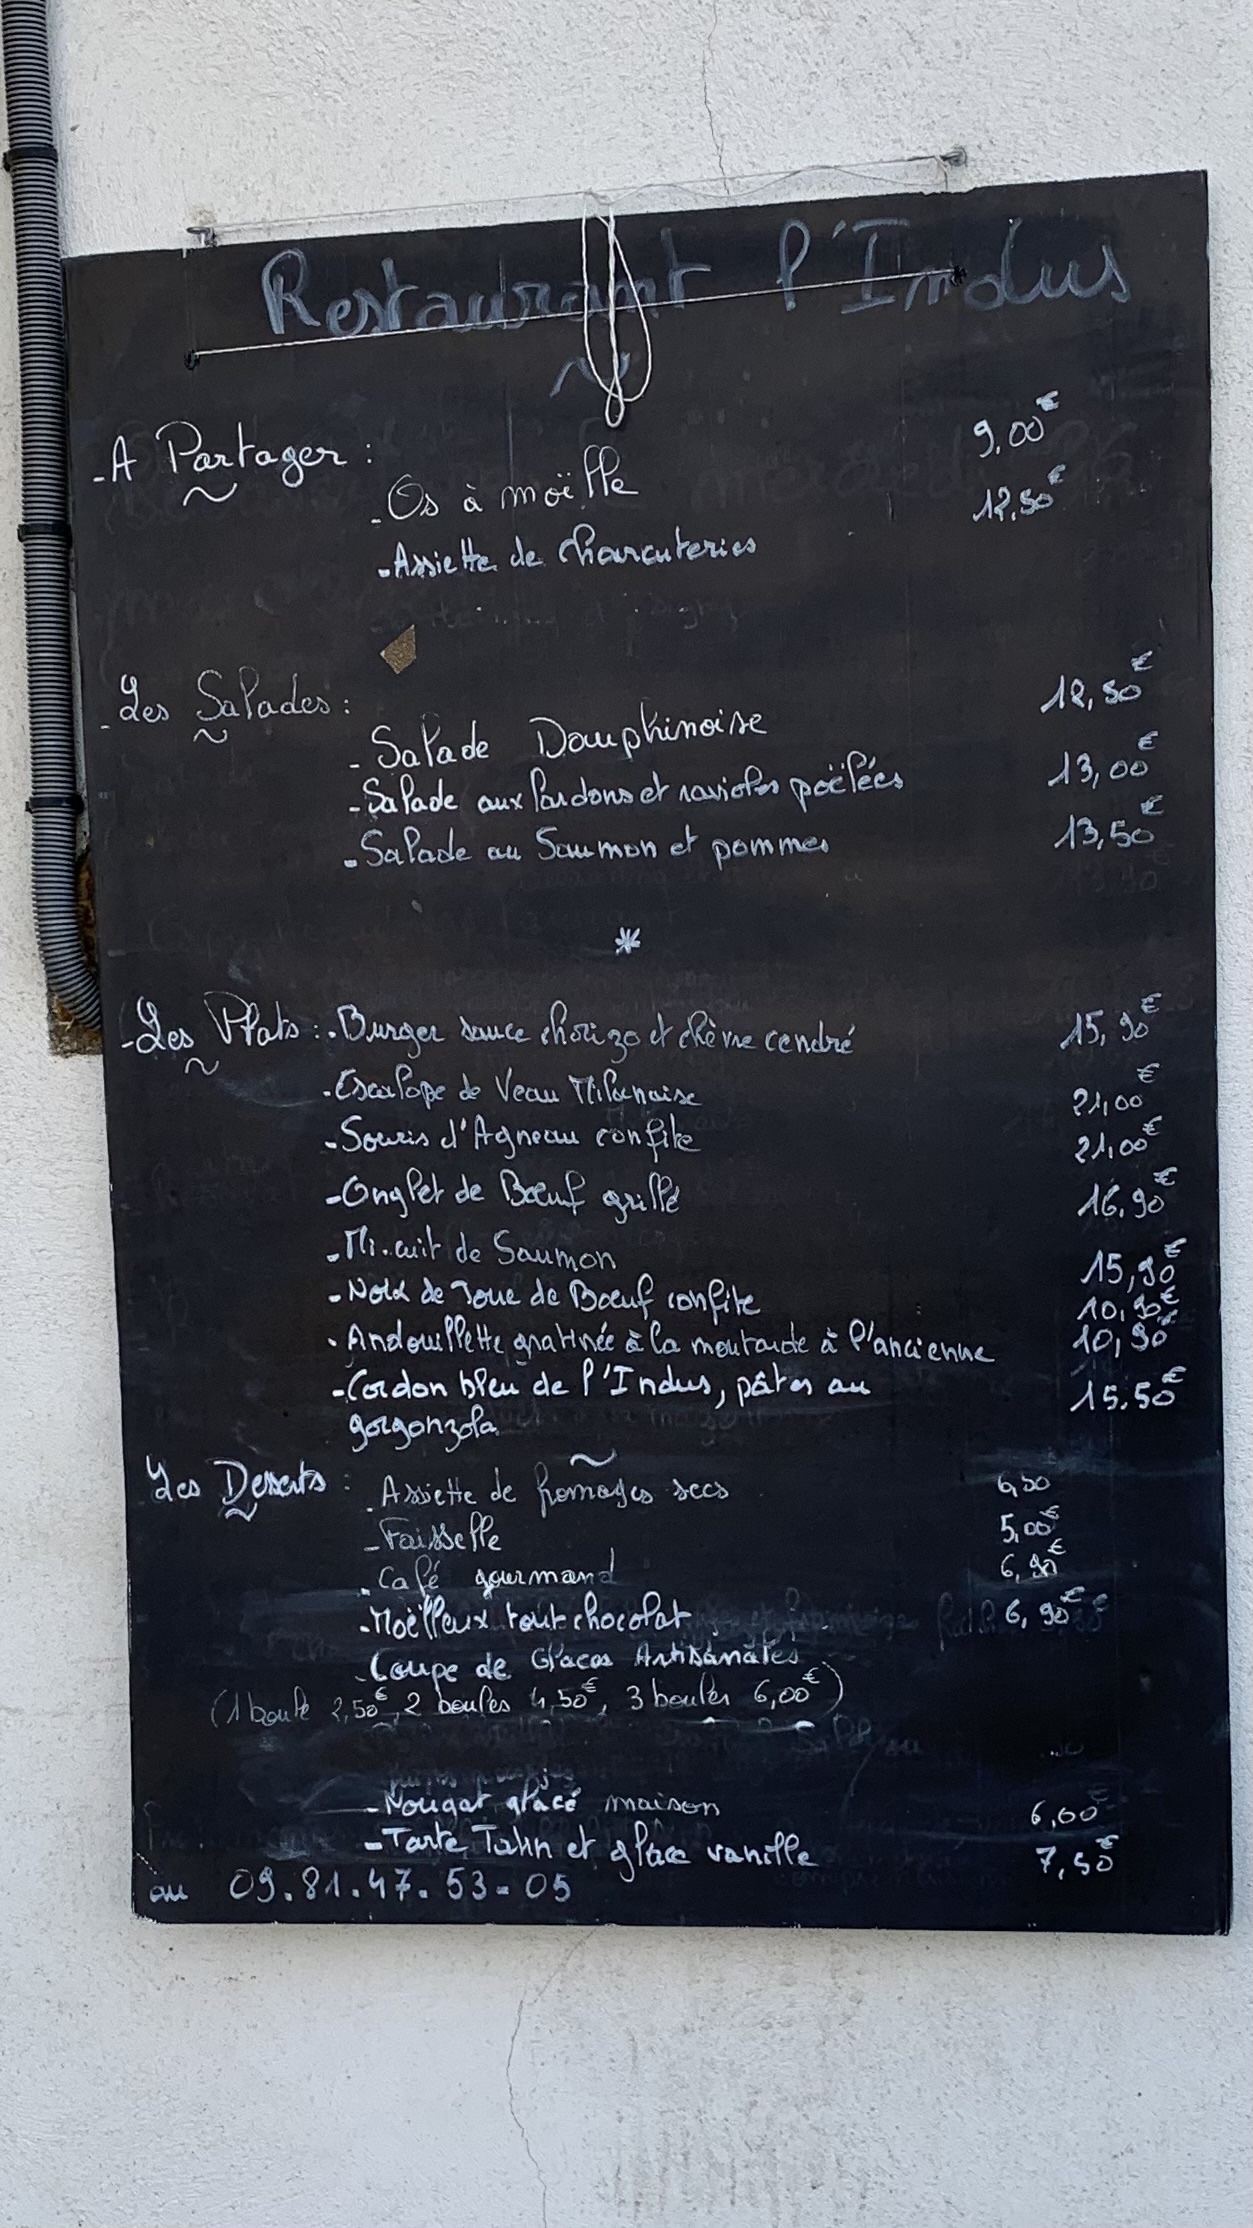 Restaurant l'Indus
- A Partager :
- Os à moëlle 9,00€
- Assiette de charcuteries 12,50€
- Les Salades :
- Salade Dauphinoise 12,50€
- Salade aux lardons et ravioles poëlées 13,00€
- Salade au Saumon et pommes 13,50€
*
- Les Plats : - Burger sauce chorizo et chèvre cendré 15,90€
- Escalope de Veau Milanaise 21,00€
- Souris d'Agneau confite 21,00€
- Onglet de Bœuf grillé 16,90€
- Mi-cuit de Saumon 15,90€
- Noix de Joue de Bœuf confite 10,90€
- Andouillette gratinée à la moutarde à l'ancienne 10,90€
- Cordon bleu de l'Indus, pâtes au 15.50€
gorgonzola
Les Desserts : - Assiette de fromages secs 6,50
- Faisselle 5,00€
- Café gourmand 6,90€
- Moëlleux tout chocolat 6,90€
- Coupe de Glaces Artisanales
(1 boule 2,50€, 2 boules 4,50€, 3 boules 6,00€)
- Nougat glacé maison 6,00€
- Tarte Tatin et glace vanille 7,50€
au 09.81.47.53-05